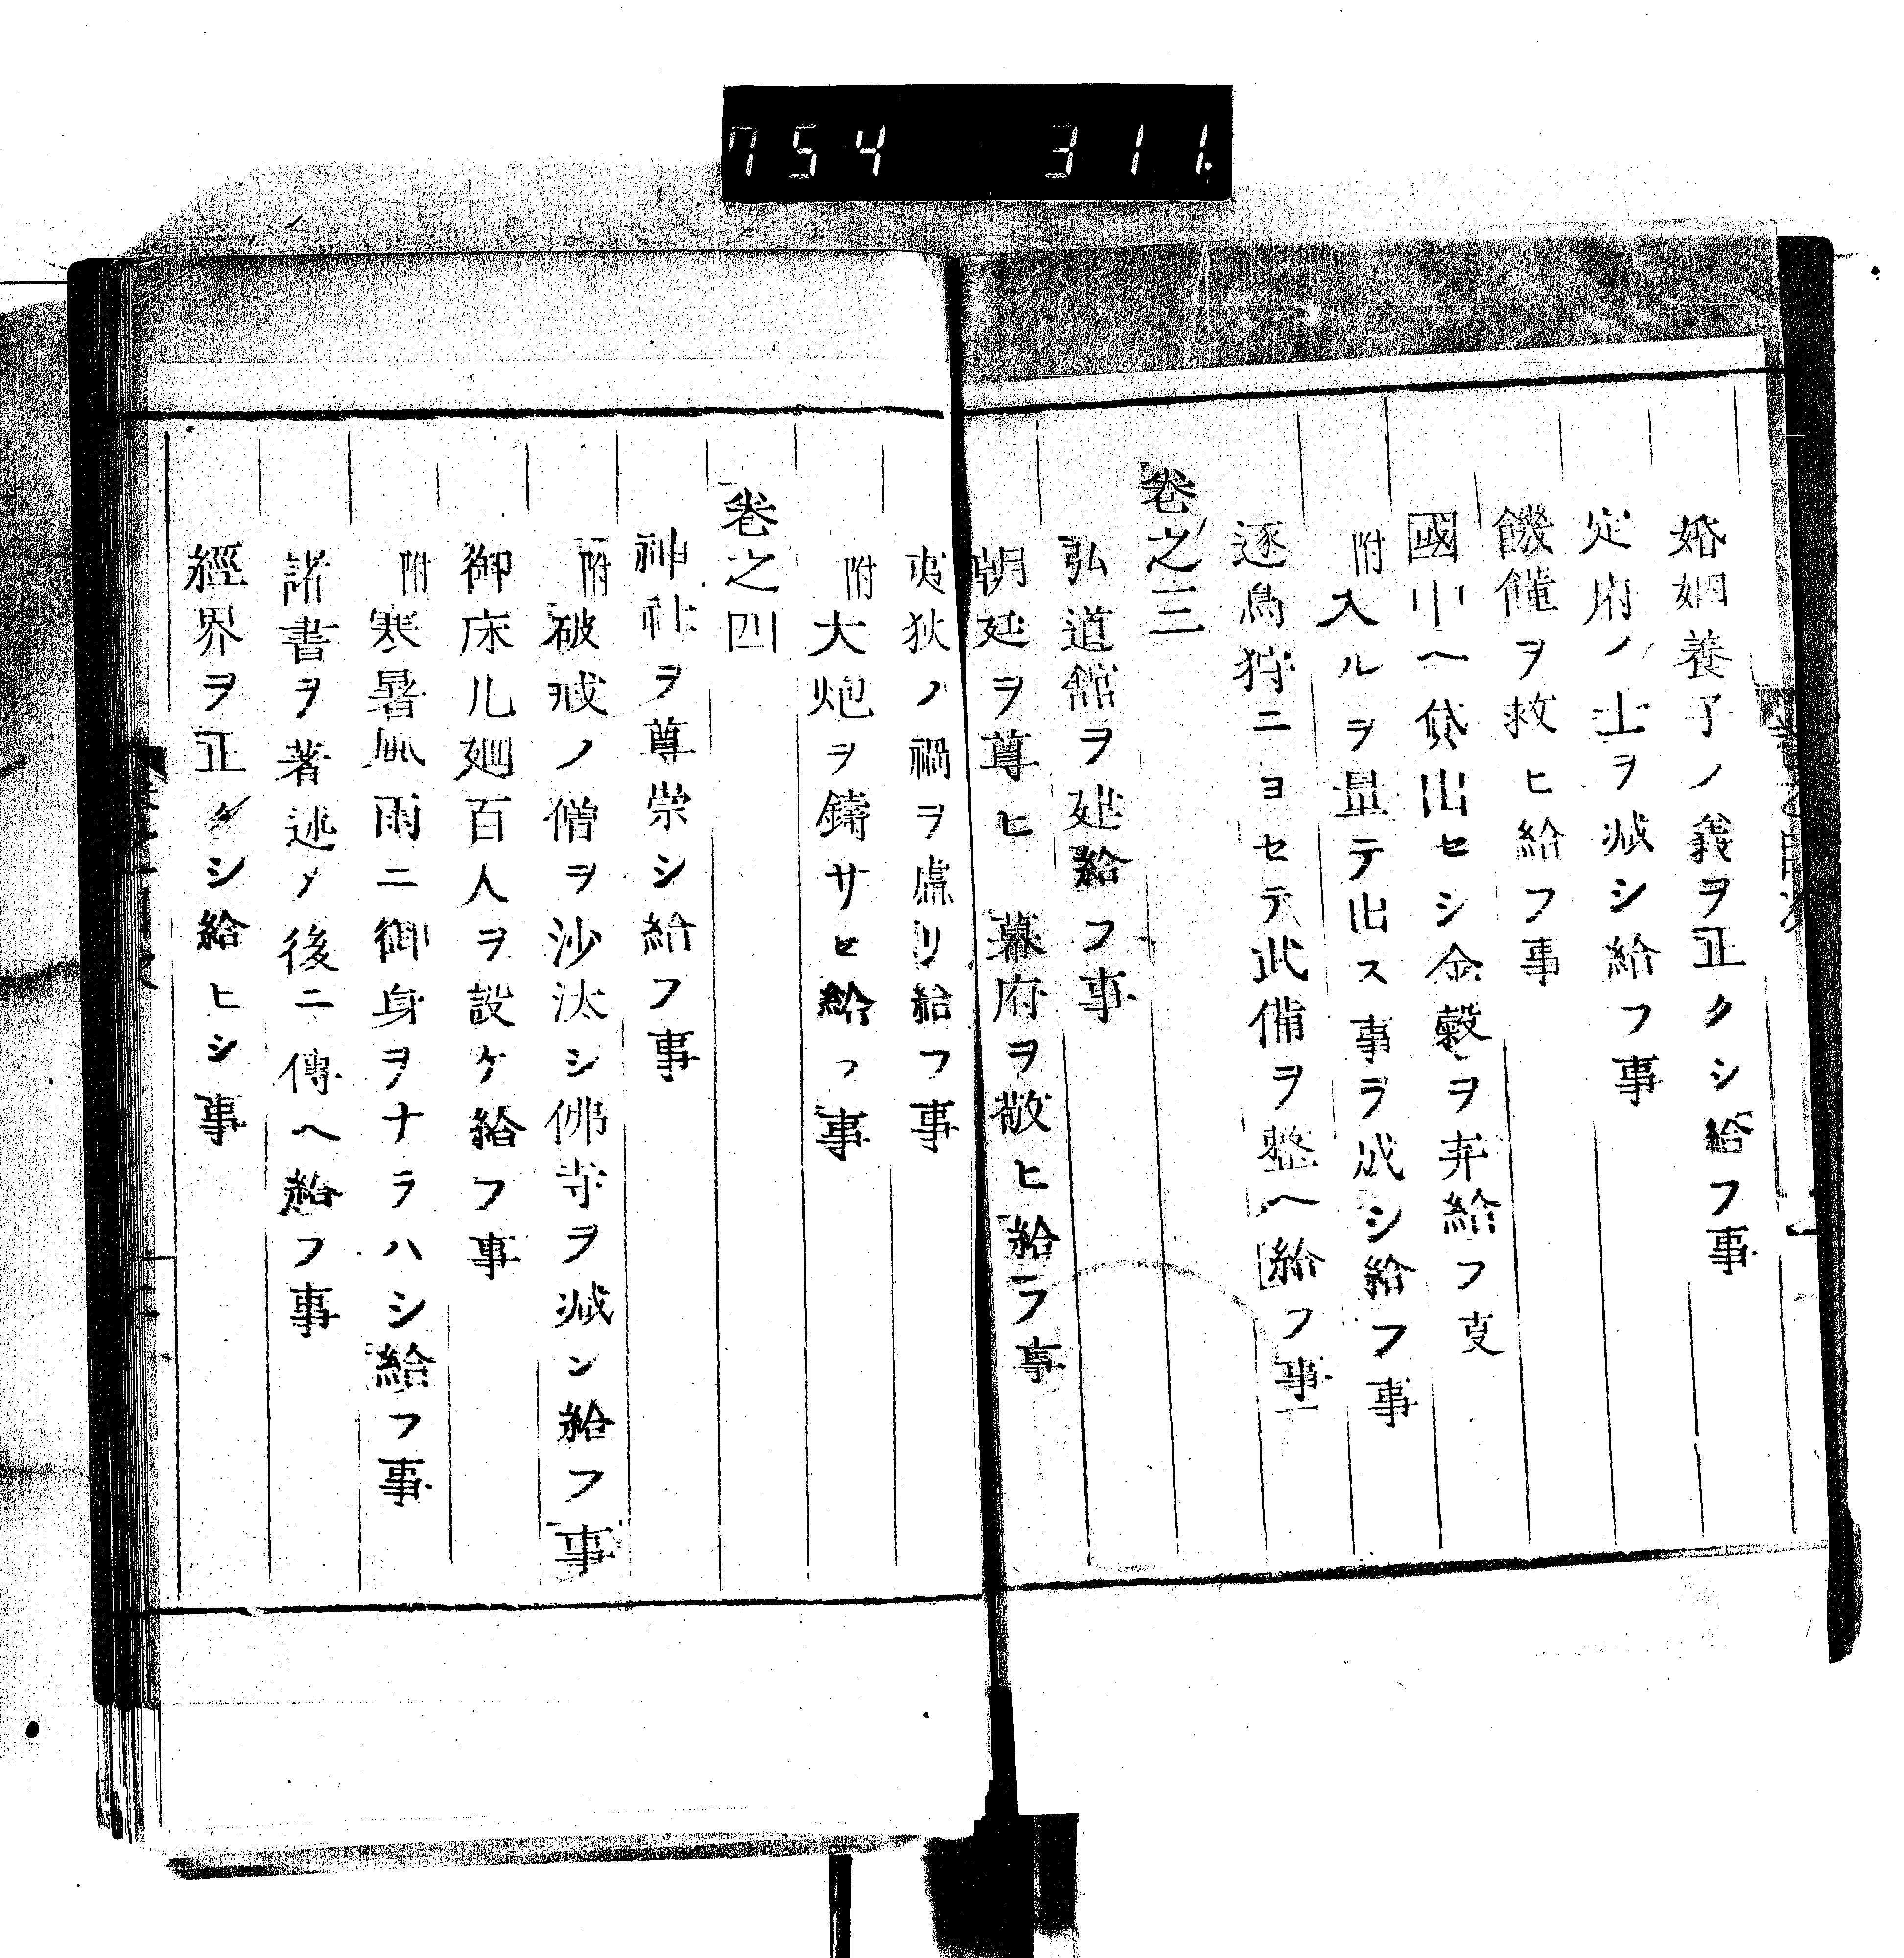 754 311
婚姻養子ノ義ヲ正クシ給フ事
定府ノ士ヲ減シ給フ事
饑饉ヲ救ヒ給フ事
國中ヘ貸出セシ金穀ヲ弃給フ叓
附入ルヲ量テ出ス事ヲ成シ給フ事
逐鳥狩ニヨセテ武備ヲ整ヘ給フ事
卷之三
弘道館ヲ建給フ事
朝廷ヲ尊ヒ 幕府ヲ敬ヒ給フ事
夷狄ノ禍ヲ慮リ給フ事
附大炮ヲ鑄サセ給フ事
卷之四
神社ヲ尊崇シ給フ事
附破戒ノ僧ヲ沙汰シ佛寺ヲ減シ給フ事
御床几廻百人ヲ設ケ給フ事
附寒暑風雨ニ御身ヲナラハシ給フ事
諸書ヲ著述メ後ニ傳ヘ給フ事
經界ヲ正クシ給ヒシ事